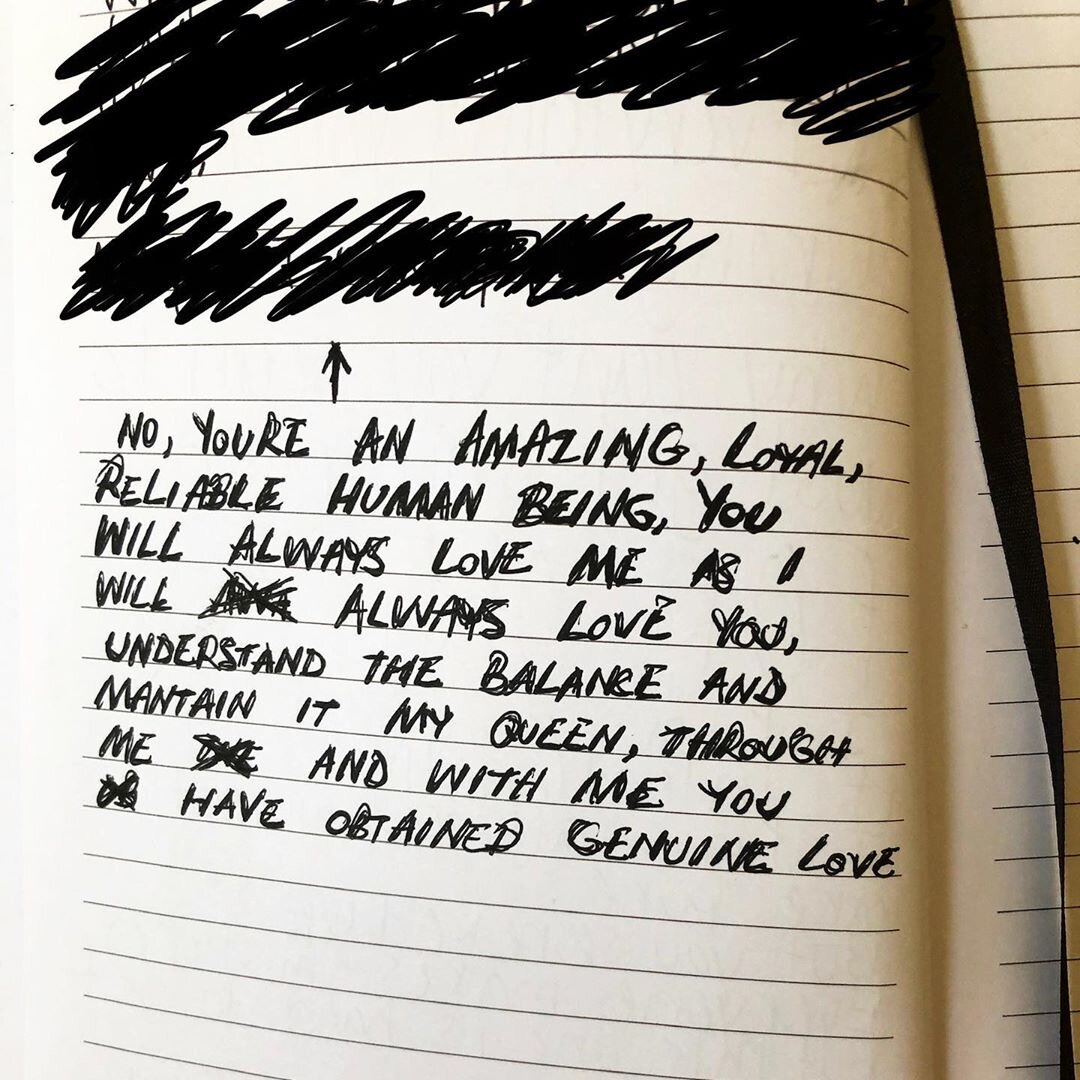 NO, YOURE AN AMAZING, LOYAL,
RELIABLE HUMAN BEING, YOU
WILL ALWAYS LOVE ME AS I
WILL ALWAYS LOVE YOU,
UNDERSTAND THE BALANCE AND
MANTAIN IT MY QUEEN, THROUGH
ME AND WITH ME YOU
HAVE OBTAINED GENUINE LOVE